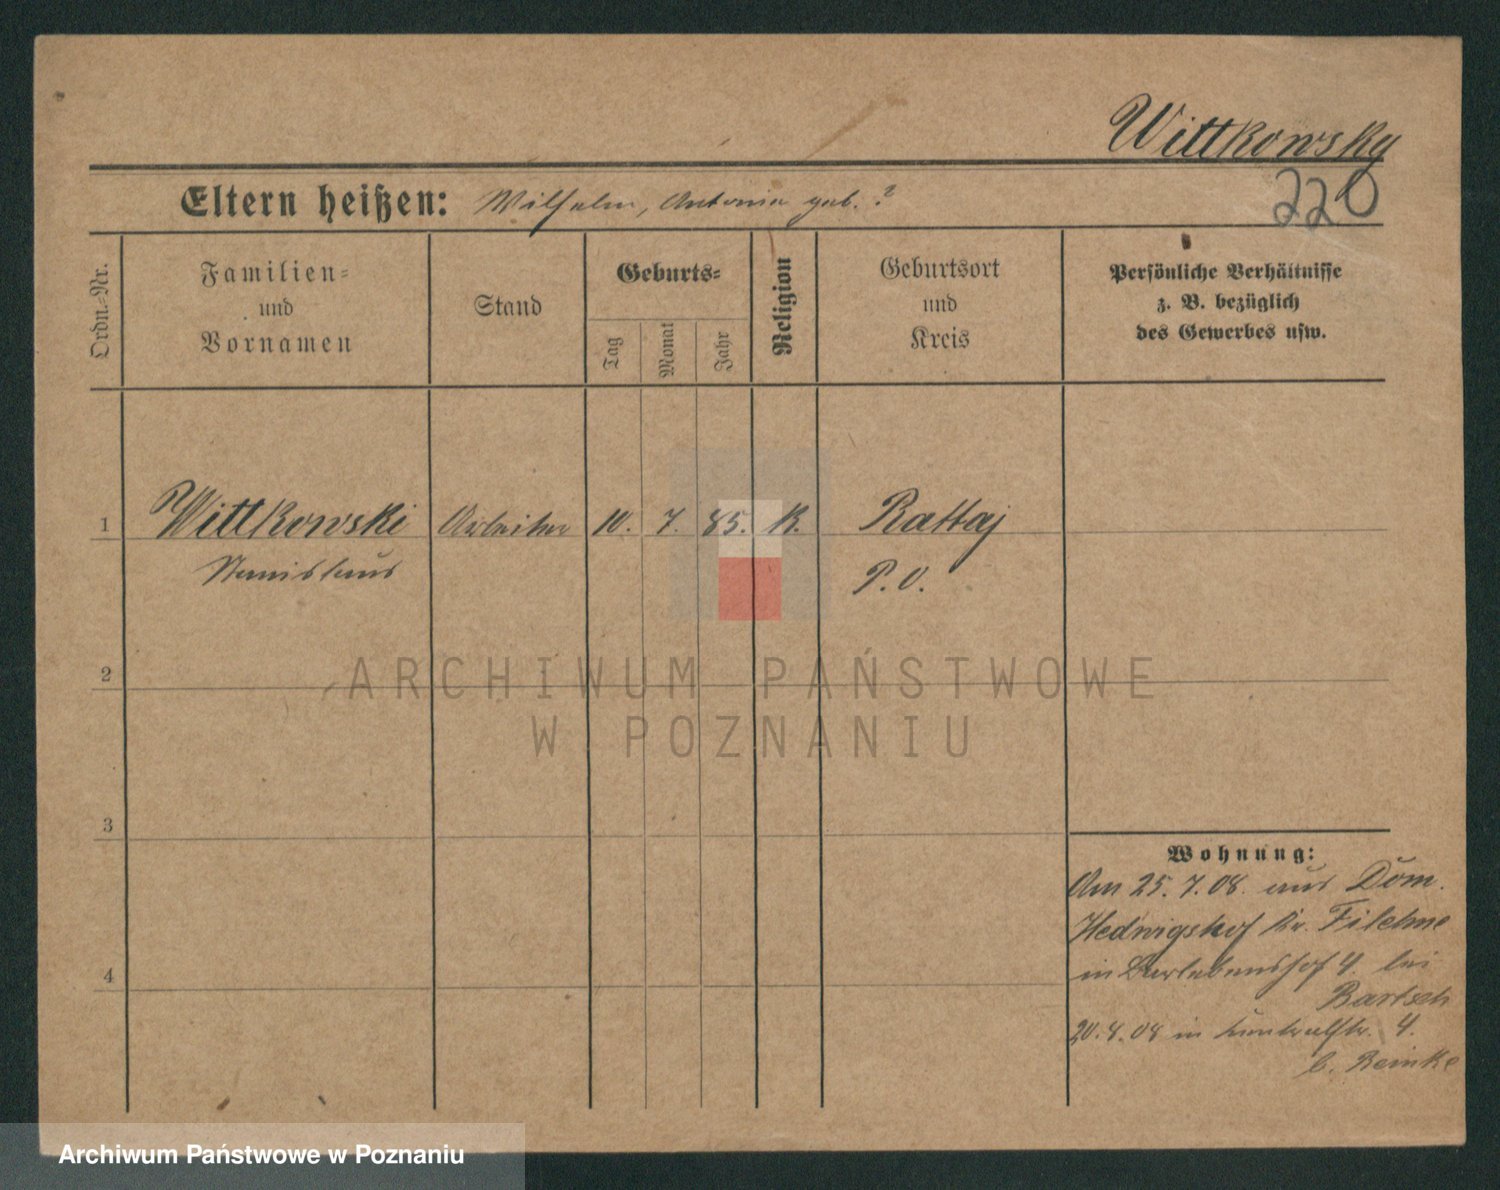 Wittkowsky
220
Eltern heißen: Wilhelm, Antonie geb. ?
Ordn.-Nr.
Familien-
und
Vornamen
Stand
Geburts-
Tag
Monat
Jahr
Religion
Geburtsort
und
Kreis
Persönliche Verhältnisse
z. B. bezüglich
des Gewerbes usw.
1 Wittkowski Arbeiter 10. 7. 85. K. Rattaj
Stanislaus P. O.
2
ARCHIWUM PAŃSTWOWE
W POZNANIU
3
Wohnung:
Am 25. 7. 08. aus Dom.
Hedwigshof Kr. Filehne
in 4. bei
Bartsch
20. 8. 08 in 4.
b. Reinke
4
Archiwum Państwowe w Poznaniu